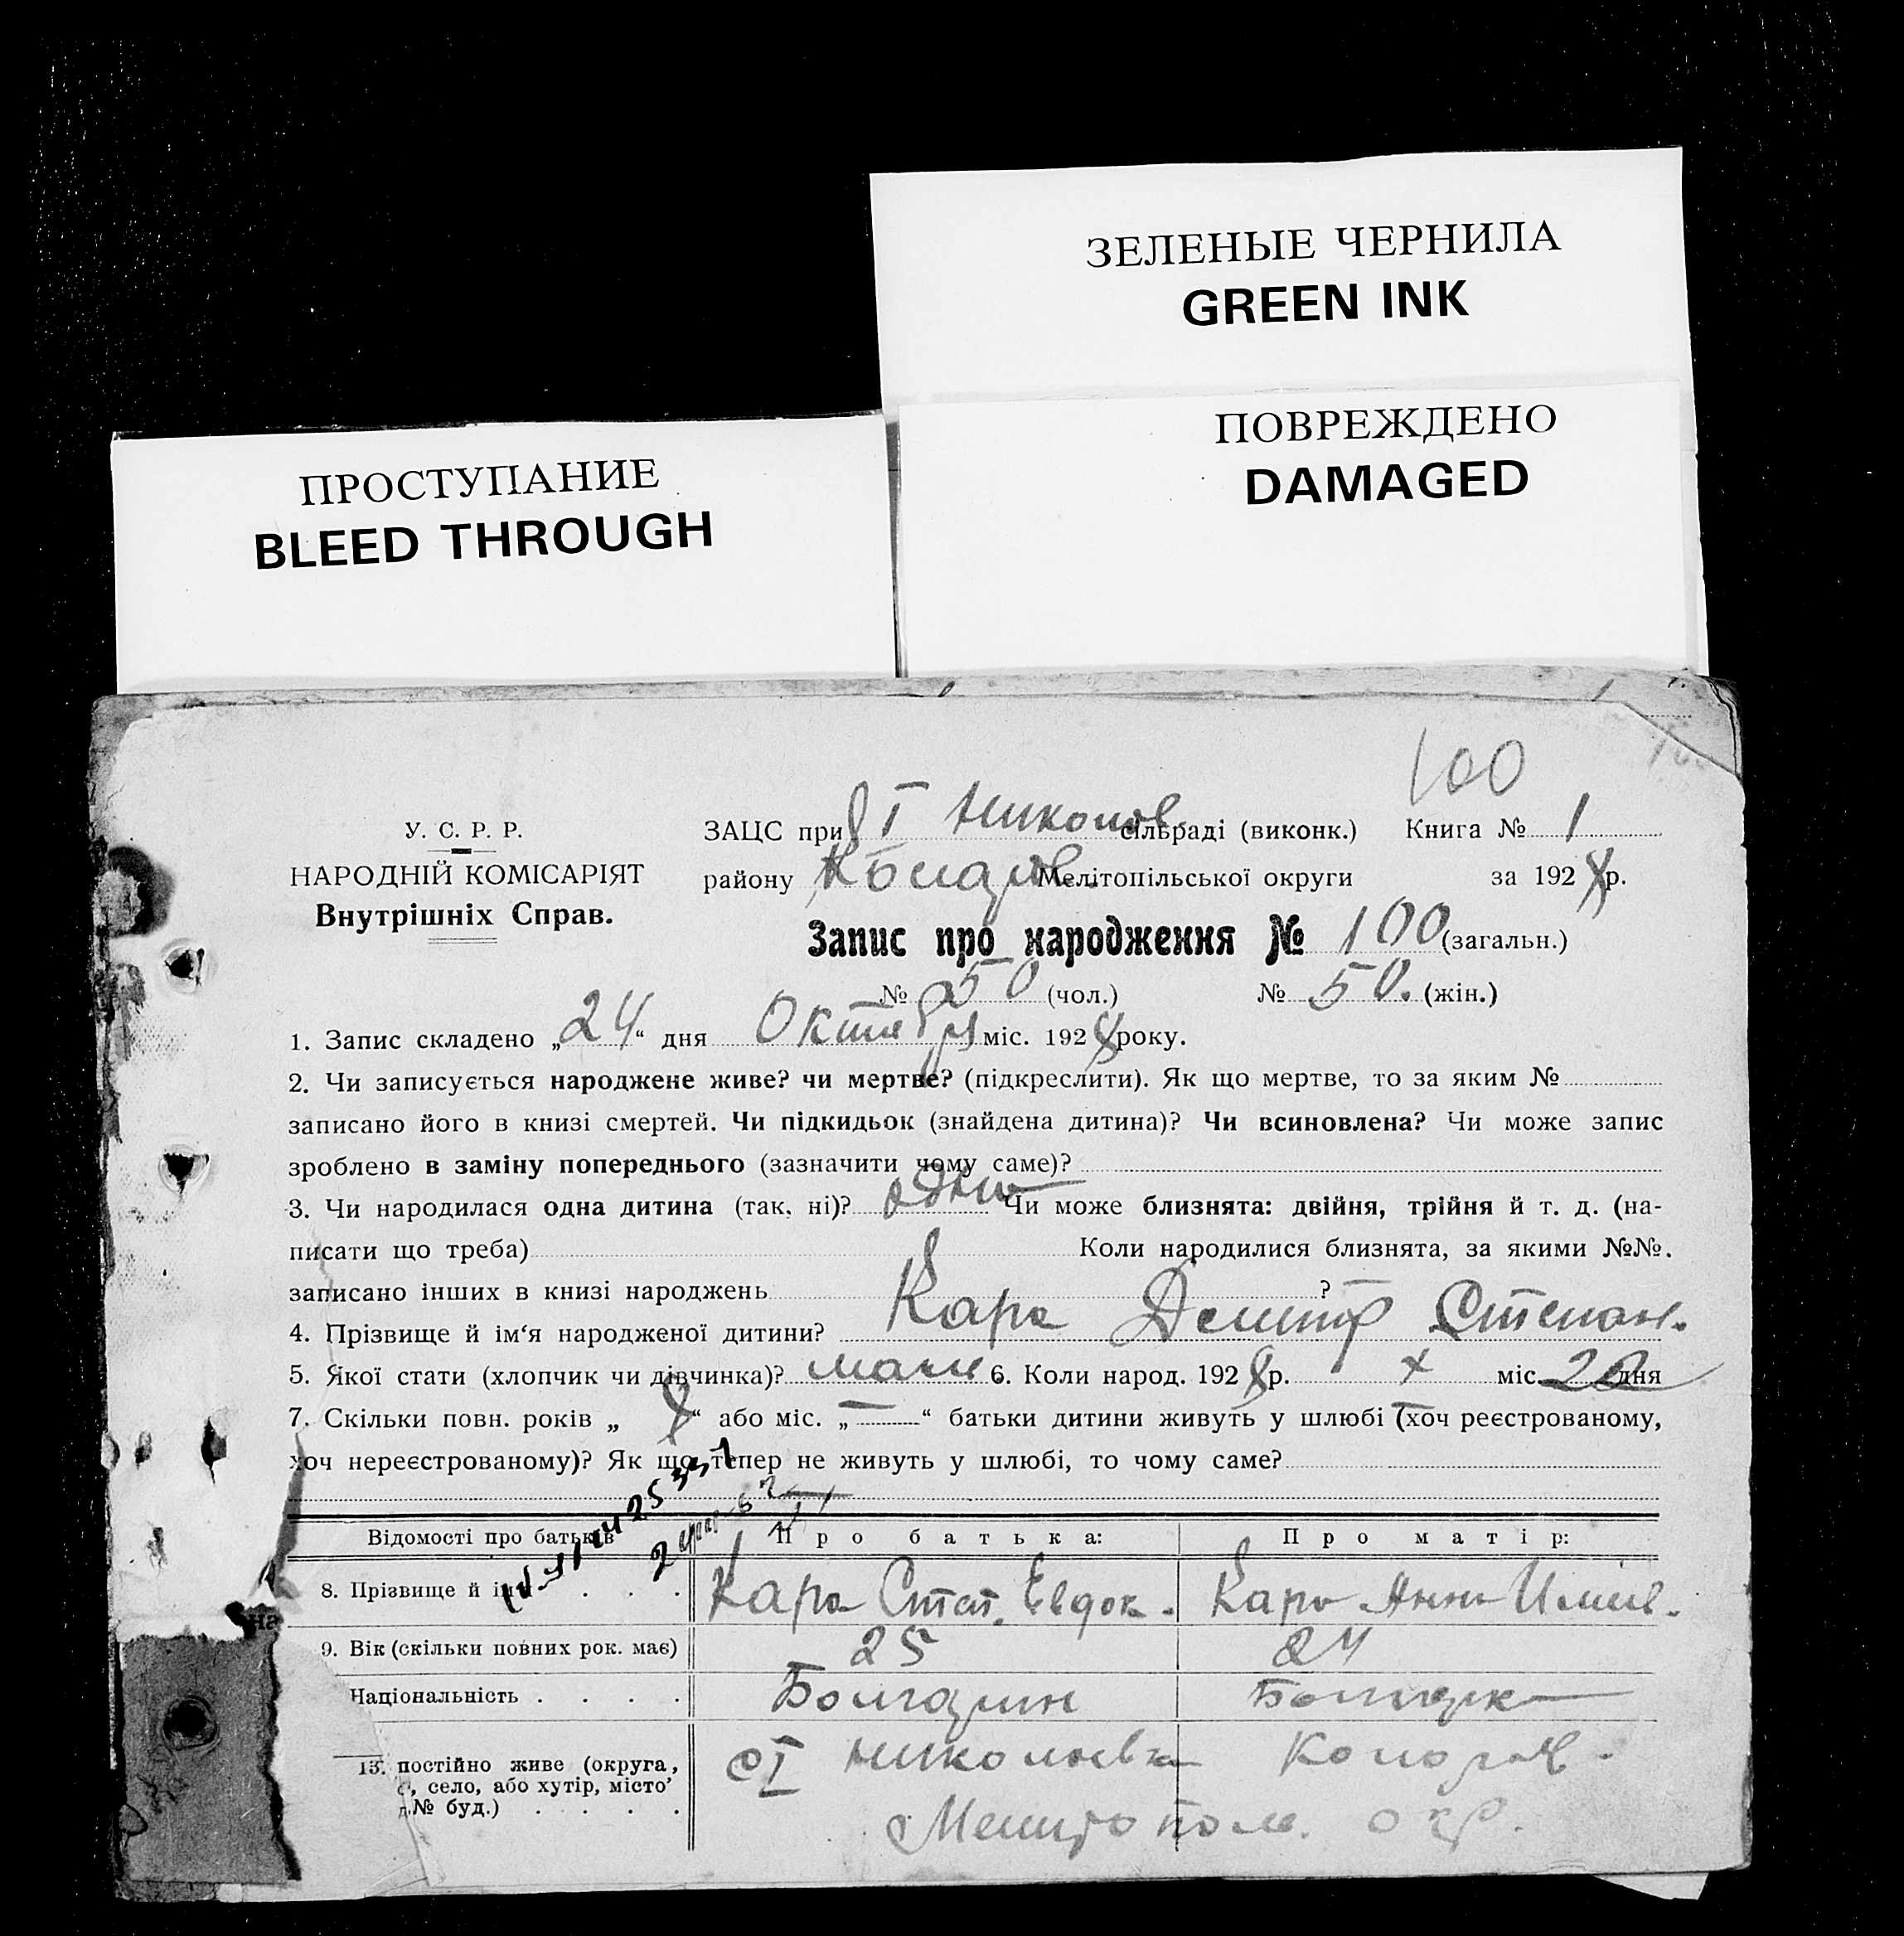 ЗЕЛЕНЫЕ ЧЕРНИЛА
GREEN INK
ПОВРЕЖДЕНО
DAMAGED
ПРОСТУПАНИЕ
BLEED THROUGH
100
У. С. Р. Р.
НАРОДНІЙ КОМІСАРІЯТ
Внутрішніх Справ.
ЗАЦС при І Николов. сільраді (виконк.) Книга № 1
району Мелітопільської округи за 1928 р.
Запис про народження № 100 (загальн.)
№ 50 (чол.) № 50. (жін.)
1. Запис складено „24“ дня Октября міс. 1928 року.
2. Чи записується народжене живе? чи мертве? (підкреслити). Як що мертве, то за яким №
записано його в книзі смертей. Чи підкидьок (знайдена дитина)? Чи всиновлена? Чи може запис
зроблено в заміну попереднього (зазначити чому саме)?
3. Чи народилася одна дитина (так, ні)? одна Чи може близнята: двійня, трійня й т. д. (на-
писати що треба) Коли народилися близнята, за якими №№.
записано інших в книзі народжень ?
4. Прізвище й ім‘я народженої дитини? Кара Дмитр Степан.
5. Якої стати (хлопчик чи дівчинка)? 6. Коли народ. 1928 р. X міс. дня
7. Скільки повн. років „ “ або міс. „—“ батьки дитини живуть у шлюбі (хоч реєстрованому,
хоч нереєстрованому)? Як що тепер не живуть у шлюбі, то чому саме?
Відомості про батьків Про батька: Про матір:
8. Прізвище й ім Кара Степ. Евдок. Кара Анна
9. Вік (скільки повних рок. має) 25 24
Національність . . . . Болгарин Болгарка
13. постійно живе (округа, с І Николаевка
село, або хутір, місто Мелитопол. окр.
№ буд.) . . . .